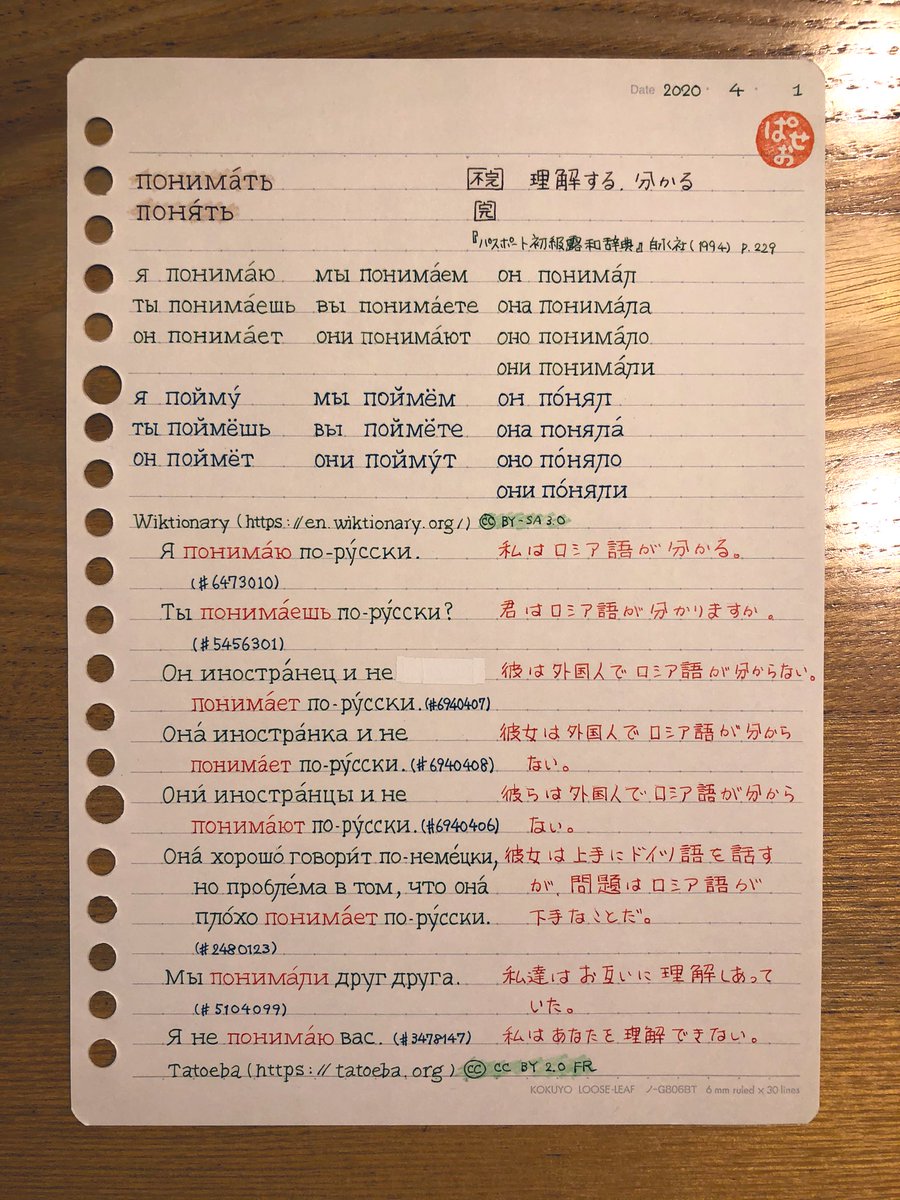 Date 2020・ 4 ・ 1
ぱせお
понима́ть 不完 理解する. 分かる
поня́ть 完
『パスポート初級露和辞典』白水社(1994) p.229
я понима́ю мы понима́ем он понима́л
ты понима́ешь вы понима́ете она понима́ла
он понима́ет они понима́ют оно понима́ло
они понима́ли
я пойму́ мы поймём он по́нял
ты поймёшь вы поймёте она поняла́
он поймёт они пойму́т оно по́няло
они по́няли
Wiktionary (https://en.wiktionary.org/) cc BY-SA 3.0
Я понима́ю по-ру́сски. 私はロシア語が分かる。
(#6473010)
Ты понима́ешь по-ру́сски? 君はロシア語が分かりますか。
(#5456301)
Он иностра́нец и не 彼は外国人でロシア語が分からない。
понима́ет по-ру́сски. (#6940407)
Она́ иностра́нка и не 彼女は外国人でロシア語が分から
понима́ет по-ру́сски. (#6940408) ない。
Они́ иностра́нцы и не 彼らは外国人でロシア語が分から
понима́ют по-ру́сски. (#6940406) ない。
Она́ хорошо́ говори́т по-неме́цки, 彼女は上手にドイツ語を話す
но пробле́ма в том, что она́ が、問題はロシア語が
пло́хо понима́ет по-ру́сски. 下手なことだ。
(#2480123)
Мы понима́ли друг друга. 私達はお互いに理解しあって
(#5104099) いた。
Я не понима́ю вас. (#3478147) 私はあなたを理解できない。
Tatoeba (https://tatoeba.org) cc CC BY 2.0 FR
KOKUYO LOOSE-LEAF ノ-G806BT 6 mm ruled × 30 lines